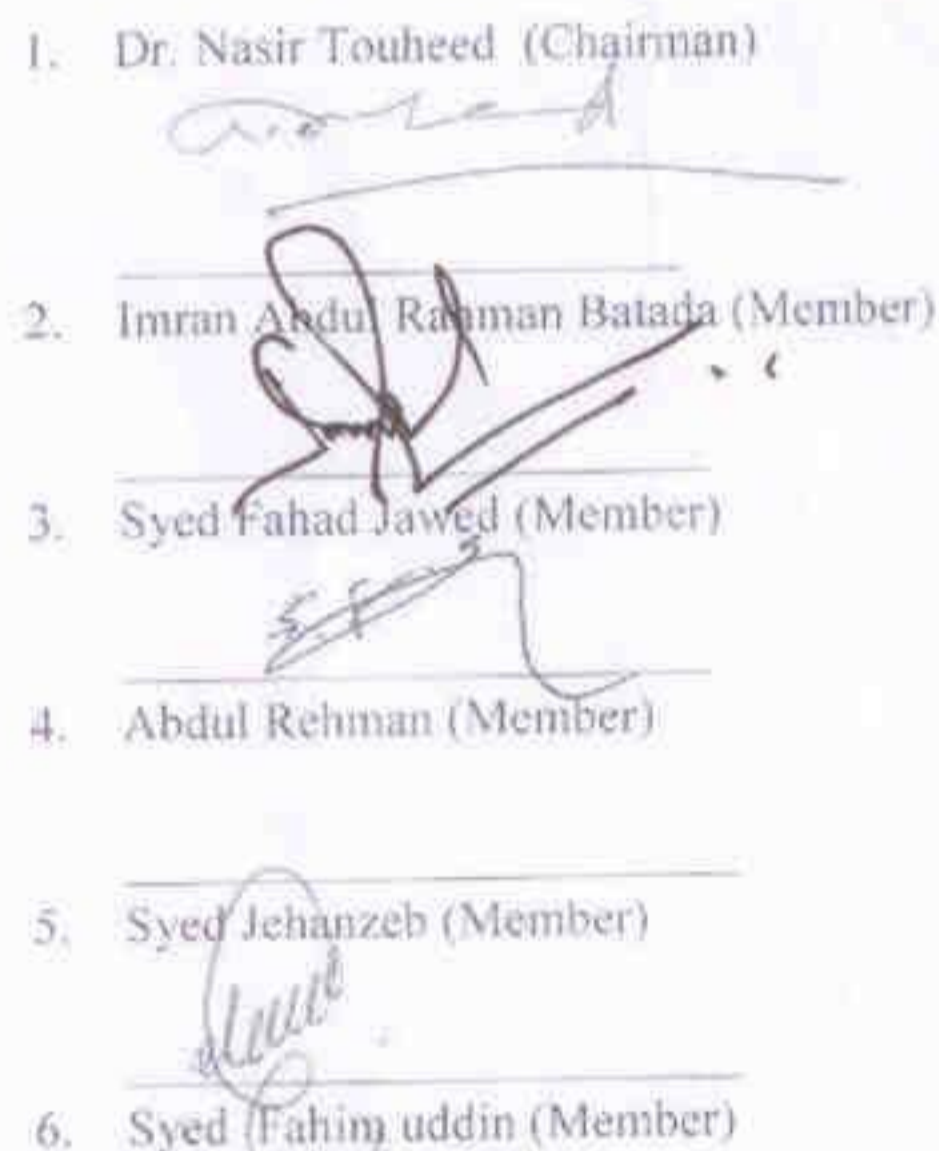 1. Dr. Nasir Touheed (Chairman)
2. Imran Abdul Rahman Batada (Member)
3. Syed Fahad Jawed (Member)
4. Abdul Rehman (Member)
5. Syed Jehanzeb (Member)
6. Syed Fahim uddin (Member)